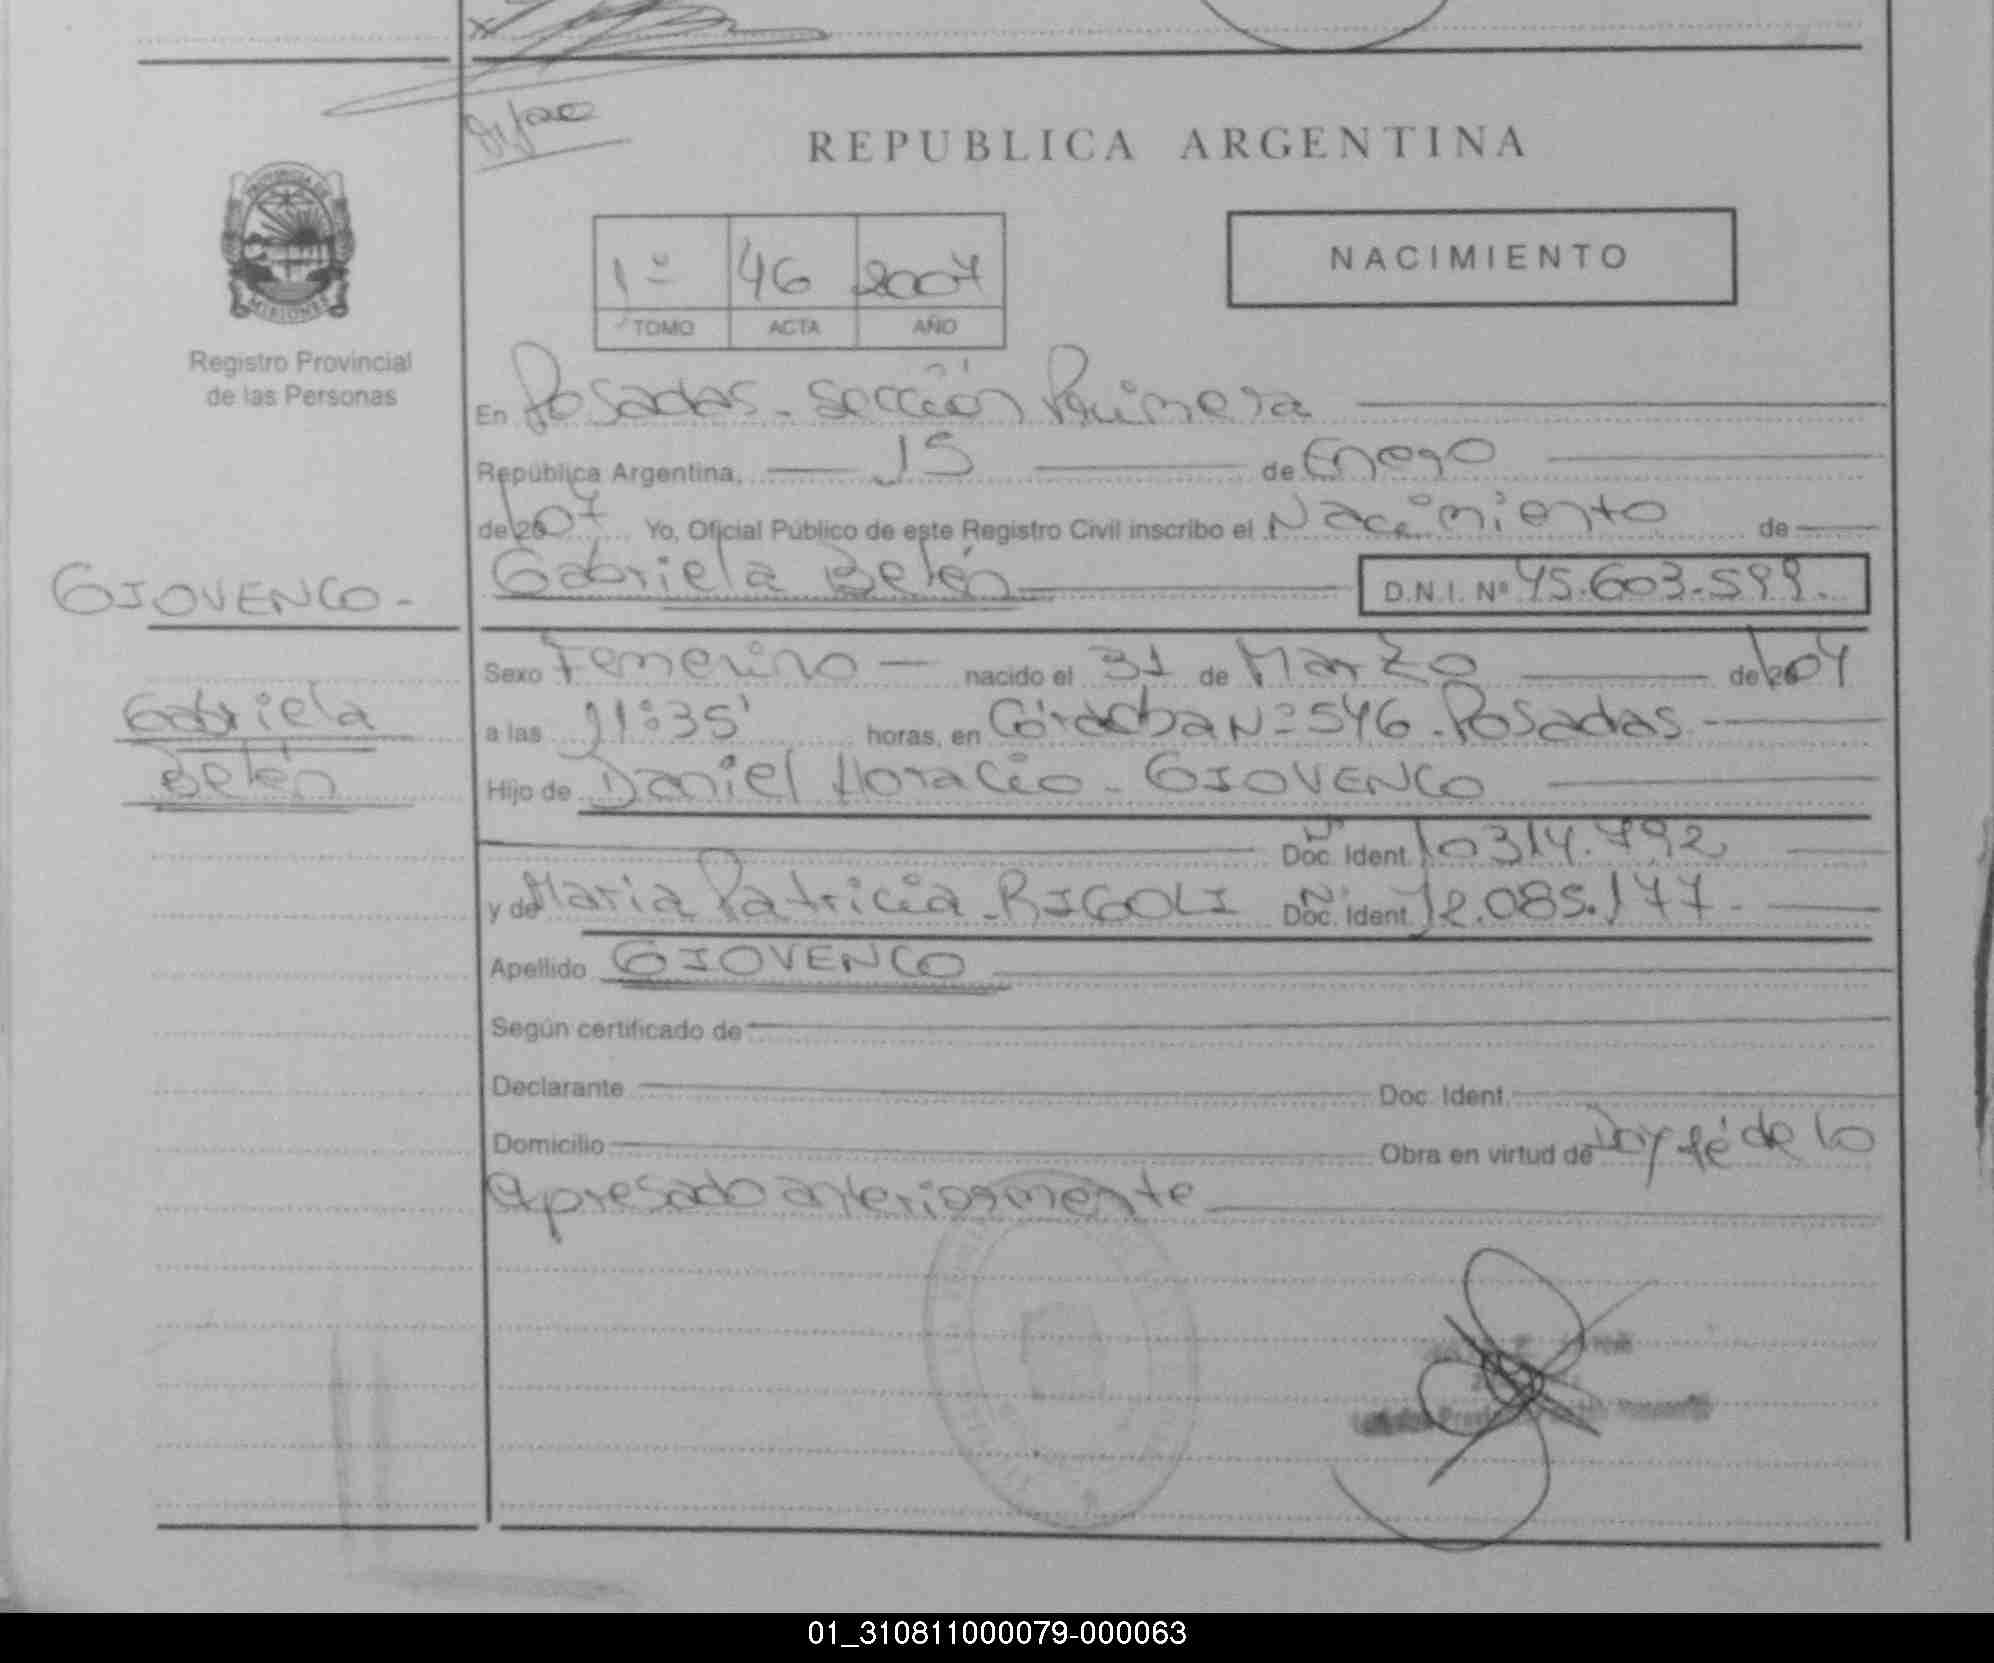 REPUBLICA ARGENTINA
PROVINCIA DE
MISIONES
Registro Provincial
de las Personas
NACIMIENTO
1º 46 2007
TOMO ACTA AÑO
En Posadas - Sección Primera
República Argentina, 15 de Enero
de 2007 Yo, Oficial Público de este Registro Civil inscribo el Nacimiento de
Gabriela Belén D.N.I. Nº 45.603.599.
GIOVENCO -
Gabriela
Belén
Sexo Femenino nacido el 31 de Marzo de 2004
a las 11:35' horas, en Córdoba Nº 546 - Posadas
Hijo de Daniel Horacio - GIOVENCO
Doc. Ident. Nº 10314.792
y de Maria Patricia - RIGOLI Doc. Ident. Nº 12.085.177 -
Apellido GIOVENCO
Según certificado de
Declarante Doc. Ident.
Domicilio Obra en virtud de Doy fé de lo
apresado anteriormente
01_310811000079-000063